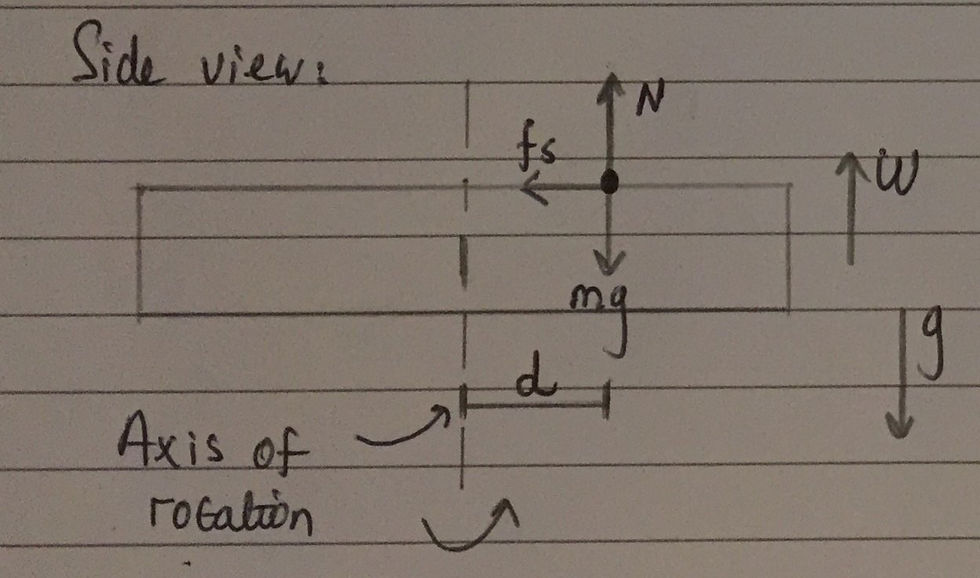 Side view:
N
fs
W
mg
g
d
Axis of
rotation